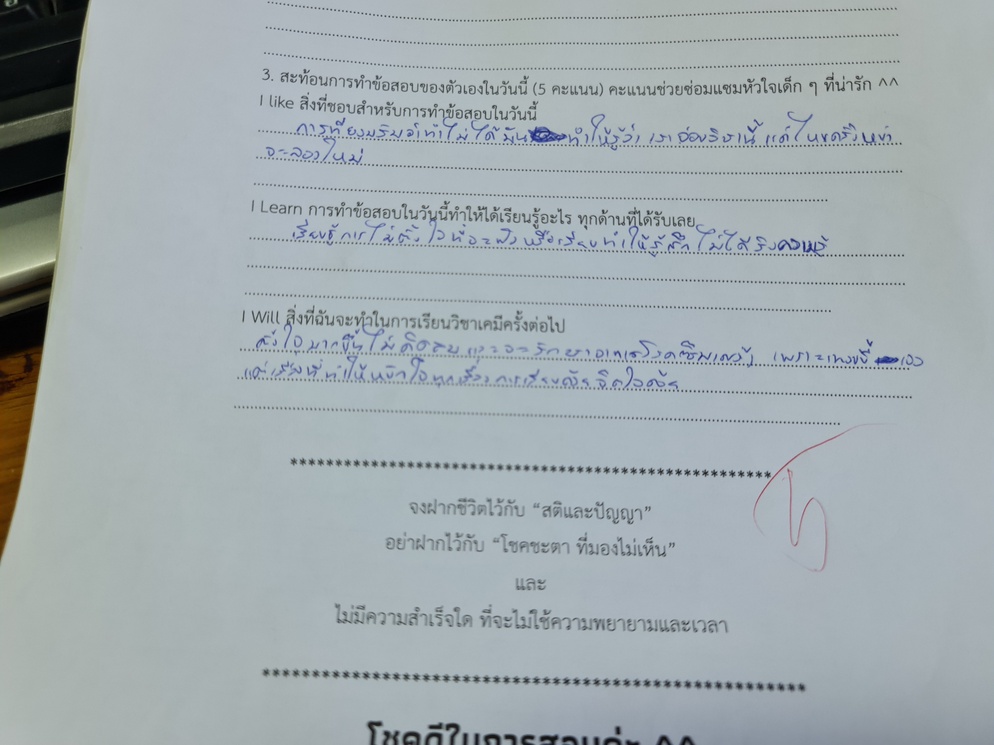 3. สะท้อนการทำข้อสอบของตัวเองในวันนี้ (5 คะแนน) คะแนนช่วยซ่อมแซมหัวใจเด็ก ๆ ที่น่ารัก ^^
I like สิ่งที่ชอบสำหรับการทำข้อสอบในวันนี้
ทำให้รู้ว่า เรา
จะลองใหม่
I Learn การทำข้อสอบในวันนี้ทำให้ได้เรียนรู้อะไร ทุกด้านที่ได้รับเลย
เรียนรู้การไม่ตั้งใจที่จะฟังหรือเรียนทำให้รู้สึกไม่ได้รับความรู้
I Will สิ่งที่ฉันจะทำในการเรียนวิชาเคมีครั้งต่อไป
ตั้งใจมากขึ้นไม่ และจะรักษาอาการโรคซึมเศร้า เพราะ
ทำให้หนักใจทุกเรื่อง การเรียนด้วย จิตใจด้วย
****************************************************
จงฝากชีวิตไว้กับ “สติและปัญญา”
อย่าฝากไว้กับ “โชคชะตา ที่มองไม่เห็น”
และ
ไม่มีความสำเร็จใด ที่จะไม่ใช้ความพยายามและเวลา
****************************************************
โชคดีในการสอบค่ะ ^^